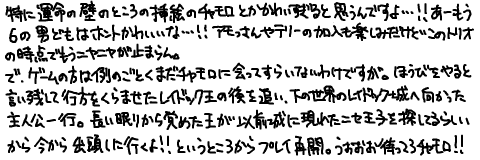 特に運命の壁のところの挿絵のチャモロとかかわいすぎると思うんですよ…!!あーもう
6の男どもはホントかわいいな…!!アモっさんやテリーの加入も楽しみだけどこのトリオ
の時点でもうニヤニヤが止まらん。
で、ゲームの方は例のごとくまだチャモロに会ってすらいないわけですが。ほうびをやると
言い残して行方をくらませたレイドック王の後を追い、下の世界のレイドック城へ向かった
主人公一行。長い眠りから覚めた王が以前城に現れたニセ王子を探してるらしい
から今から出頭しに行くよ!!というところからプレイ再開。うおおお待ってろチャモロ!!